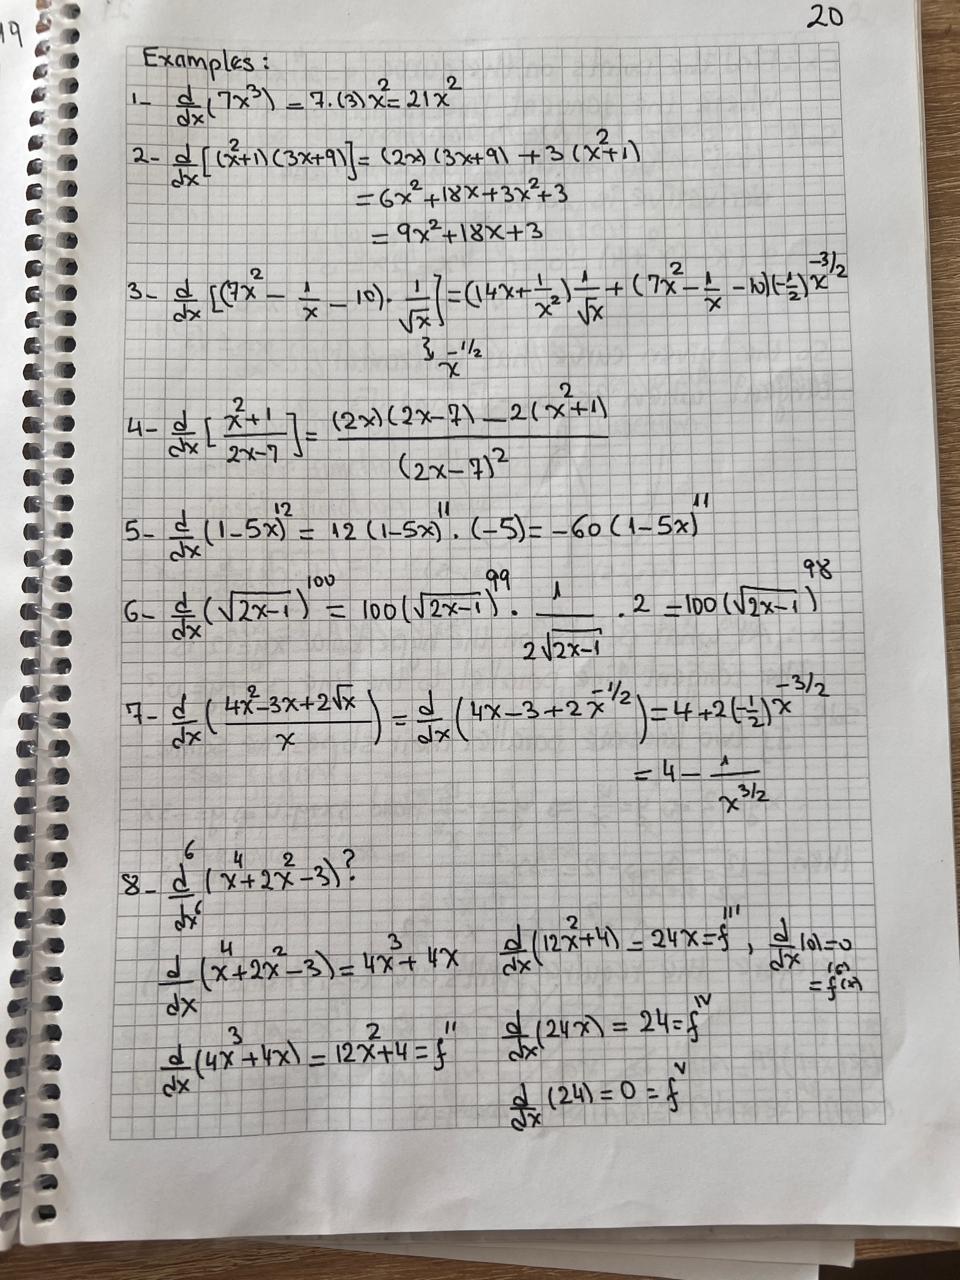 19
20
Examples:
1- d/dx (7x³) = 7.(3)x² = 21x²
2- d/dx [(x²+1)(3x+9)] = (2x)(3x+9) + 3(x²+1)
= 6x²+18x+3x²+3
= 9x²+18x+3
3- d/dx [(7x² - 1/x - 10) . 1/√x] = (14x + 1/x²) 1/√x + (7x² - 1/x - 10)(-1/2) x^(-3/2)
x^(-1/2)
4- d/dx [(x²+1)/(2x-7)] = ((2x)(2x-7) - 2(x²+1))/(2x-7)²
5- d/dx (1-5x)¹² = 12(1-5x)¹¹ . (-5) = -60(1-5x)¹¹
6- d/dx (√(2x-1))¹⁰⁰ = 100(√(2x-1))⁹⁹ . 1/(2√(2x-1)) . 2 = 100(√(2x-1))⁹⁸
7- d/dx ((4x²-3x+2√x)/x) = d/dx (4x-3+2x^(-1/2)) = 4+2(-1/2)x^(-3/2)
= 4 - 1/x^(3/2)
8- d⁶/dx⁶ (x⁴+2x²-3)?
d/dx (x⁴+2x²-3) = 4x³+4x
d/dx (4x³+4x) = 12x²+4 = f''
d/dx (12x²+4) = 24x = f''' , d/dx (0) = 0
= f⁽⁶⁾(x)
d/dx (24x) = 24 = f^IV
d/dx (24) = 0 = f^V